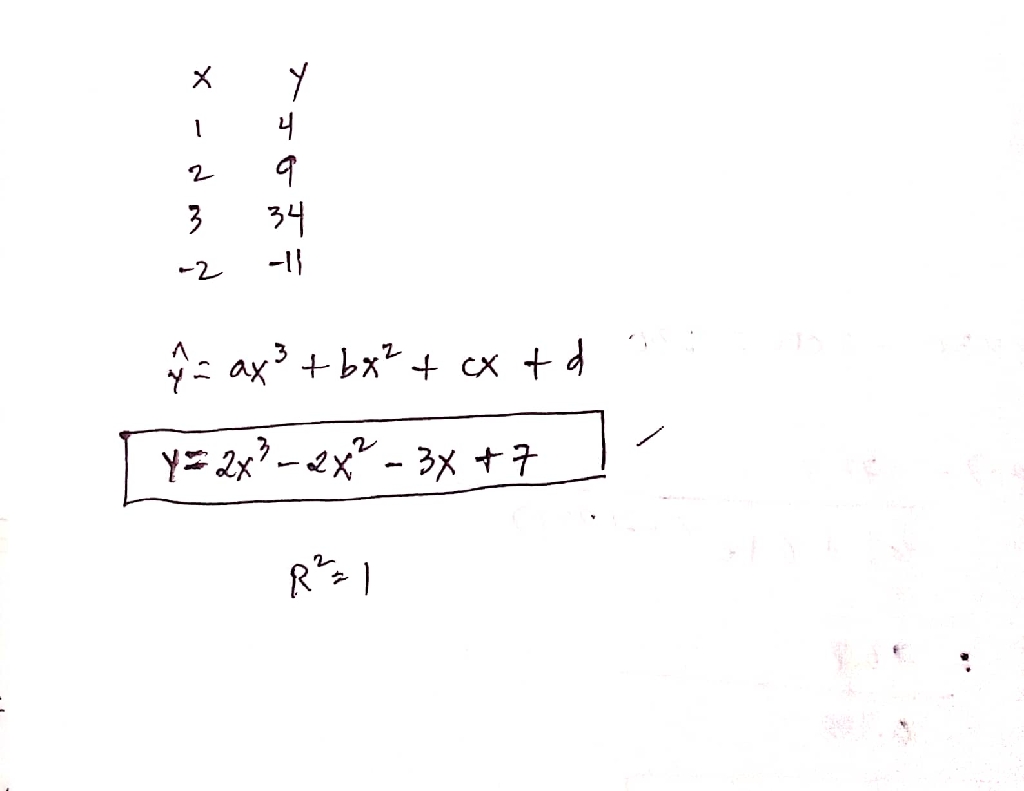 x y
1 4
2 9
3 34
-2 -11
ŷ = ax³ + bx² + cx + d
y = 2x³ - 2x² - 3x + 7
R² = 1